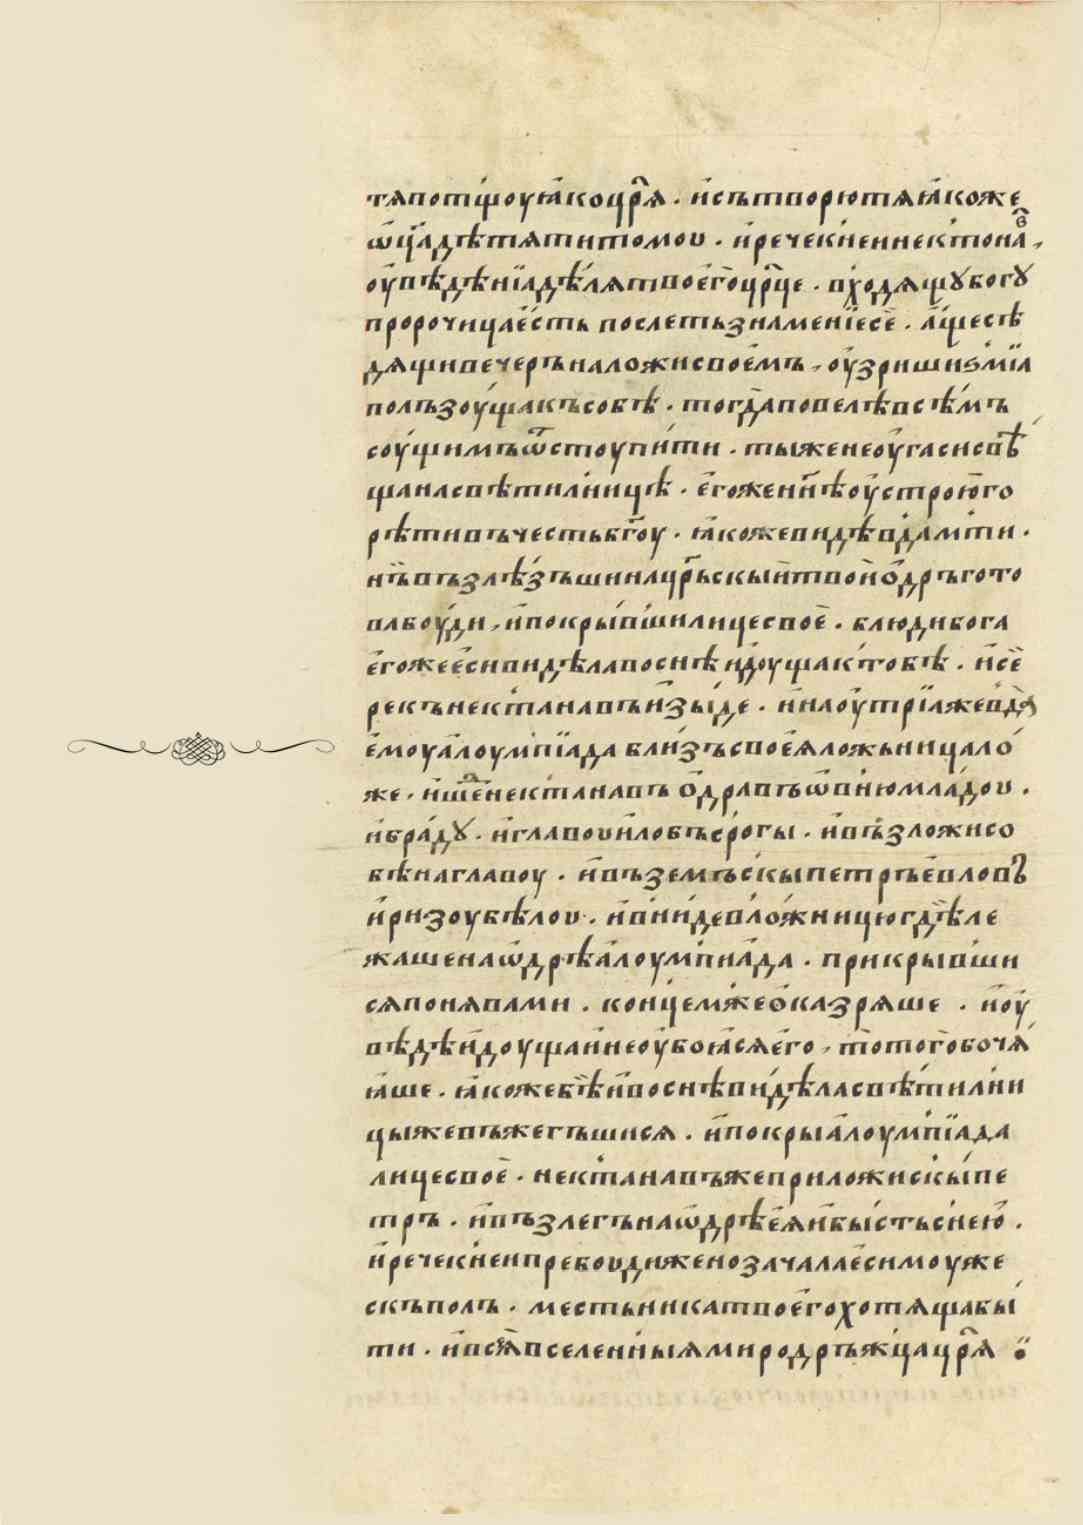 тѧпотщоуꙗкоцр҃ѧ · исътворютѧꙗкоже
ѿц҃адѣтѧтитомоу · иречекнеинектона
оувѣдѣнїадѣлѧтвоегоцр҃це · входѧщꙋбогꙋ
пророчицаесть послетьзнаменїесе · ащесѣ
дѧщивечеръналожисвоемъ · оузришиѕмїа
ползъзоущакъсобѣ · тогдаповелѣвсѣмъ
соущимъѿстоупити · тыженеоугасисвѣ
щанасвѣтилници · егоженн҃ѣоустроюго
рѣтивъчестьбг҃оу · ꙗкожевидѣвдамти ·
нъ҃възлѣзъшинацр҃ьскыитвоиѻдръгото
вабоуди · ипокрывшилицесвое · блюдибога
егожеесивидѣлавоснѣидоущактобѣ · исе
рекънектанавъизыиде · инаоутрїажевдѧ
емоуалоумпїада близъсвоеѧложьницало
же · ишенектанавъ ѻдравъѿвнюмладоу ·
ибрадꙋ · иглавоуилобъсрогы · ивъзложисо
бѣнаглавоу · ивъземъскыпетръевловъ
иризоубѣлоу · ивнидевложницюгдѣле
жашенаѡдрѣалоумпиада · прикрывши
сѧпонѧвами · концемжеоказрѧше · иоу
вѣдѣидоущаинеоубоꙗсѧего · тотогобочѧ
ꙗше · ꙗкожебѣивоснѣвидѣласвѣтилни
цыжевъжегъшисѧ · ипокрыалоумпїада
лицесвое · нектанавъжеприложискыпе
тръ · ивъзлегънаѡдрѣеѧибыстьснею ·
иречекнеипребоудиженозачалаесимоуже
скъполъ · местьникатвоегохотѧщабы
ти · ивсеѧвселенныѧмиродръжцацр҃ѧ